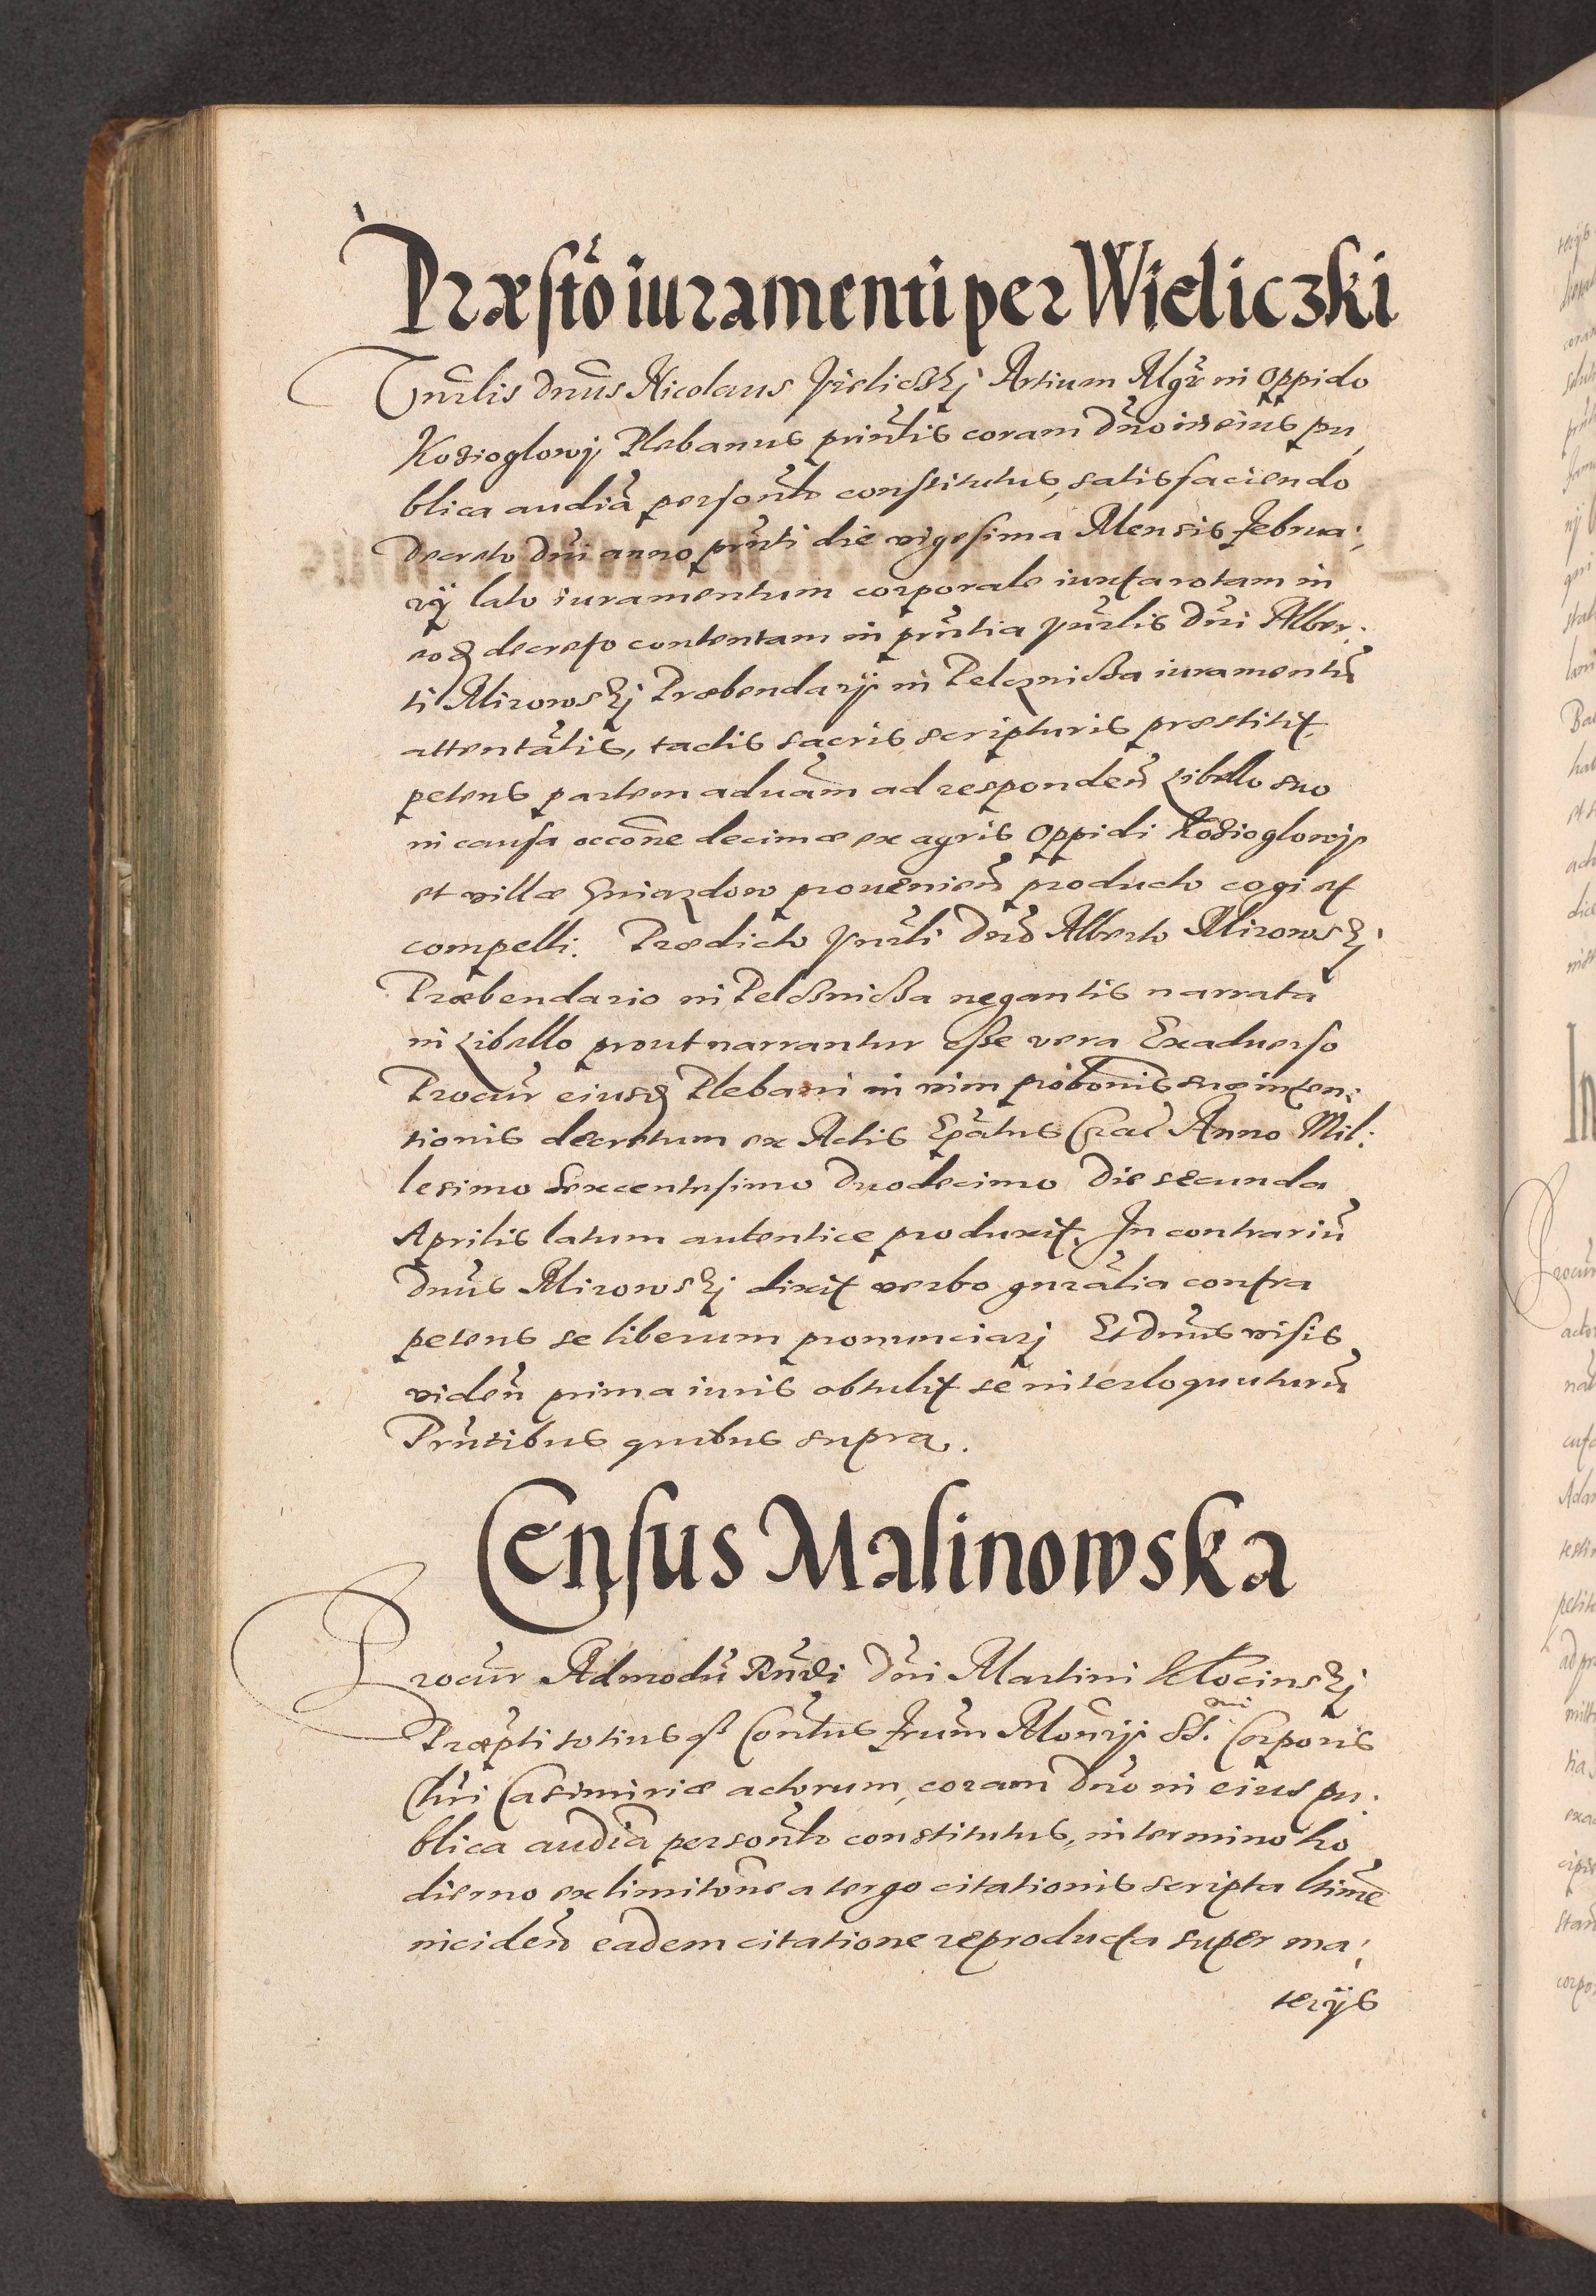 Præstõ iuramenti per Wieliczki
Vnrlis dnus Nicolaus Vieliczkj Artium Mgr in oppido
Kozioglowy Plebanus prinlis coram dno in eius pu,
blica audia personlr constitutus, satisfaciendo
decreto dni anno prnti die vigesima Mensis Februa:,
rÿ lato iuramentum corporale iuxta rotam in
eod decreto contentam in prntia Vnrlis dni Alber:
ti Mirowskj Præbendarÿ in Pelcznicza iuramentũ
attentalis, tactis sacris scripturis præstitit,
petens partem aduam ad responden Libello suo
in causa occone decimæ ex agris oppidi Kozioglowy
et villæ Gniazdow prouenien producto cogi et
compelli. Prædicto Vnrli Dno Alberto Mirowskj
Præbendario in Pelcznicza negantis narrata
in Libello prout narrantur esse vera Exaduerso
Procur eiusd Plebani in vim probonis suæ inten:
tionis decretum ex Actis Epatus Crac Anno Mil:
lesimo Sexcentesimo Duodecimo Die secunda
Aprilis latum autentice produxit. In contrariũ
dnus Mirowskj dixit verbo gnralia contra
petens se liberum pronunciarj Et dnus visis
viden prima iuris obtulit se interloquuturũ
Prntibus quibus supra.
Census Malinowska
Procur Admodũ Rndi Dni Martini Kłocinskj
Præpti totiusqz Contus Frum Monrÿ SS. mi Corporis
Chri Casimiriæ actorum, coram dno in eius pu:
blica audia personlr constitutus, in termino ho
dierno ex limitone a tergo citationis scripta ltime
inciden eadem citatione reproducta super ma:,
terÿs